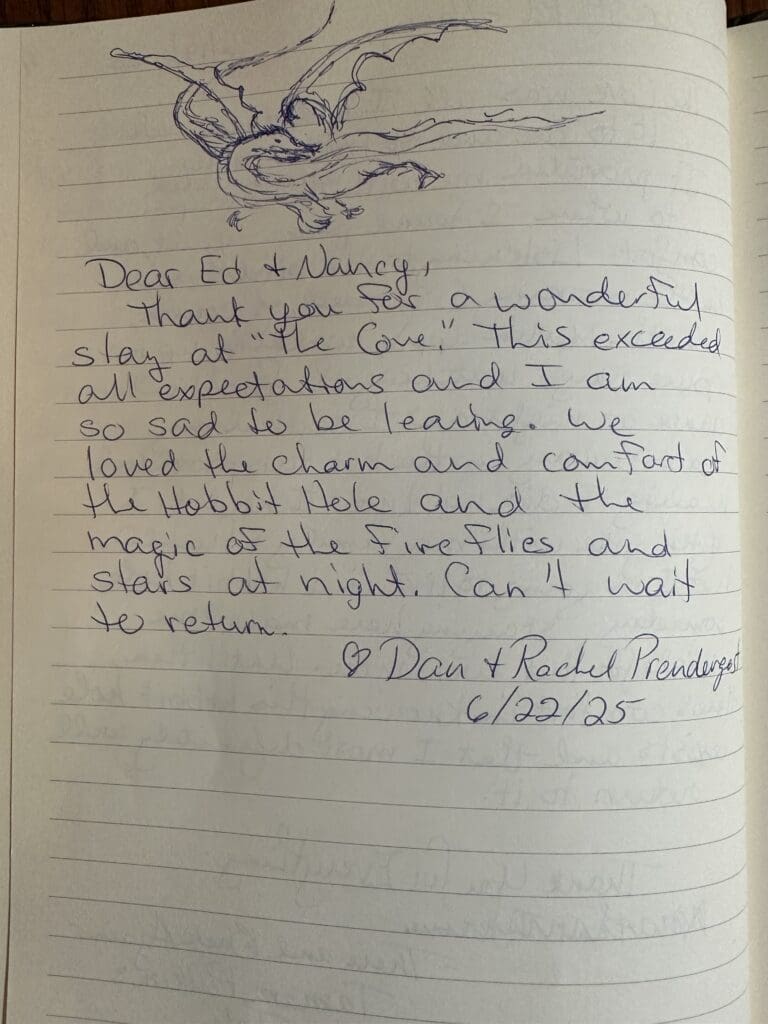 Dear Ed + Nancy,
Thank you for a wonderful
stay at "The Cove." This exceeded
all expectations and I am
so sad to be leaving. We
loved the charm and comfort of
the Hobbit Hole and the
magic of the fireflies and
stars at night. Can't wait
to return.
♡ Dan + Rachel Prendergast
6/22/25